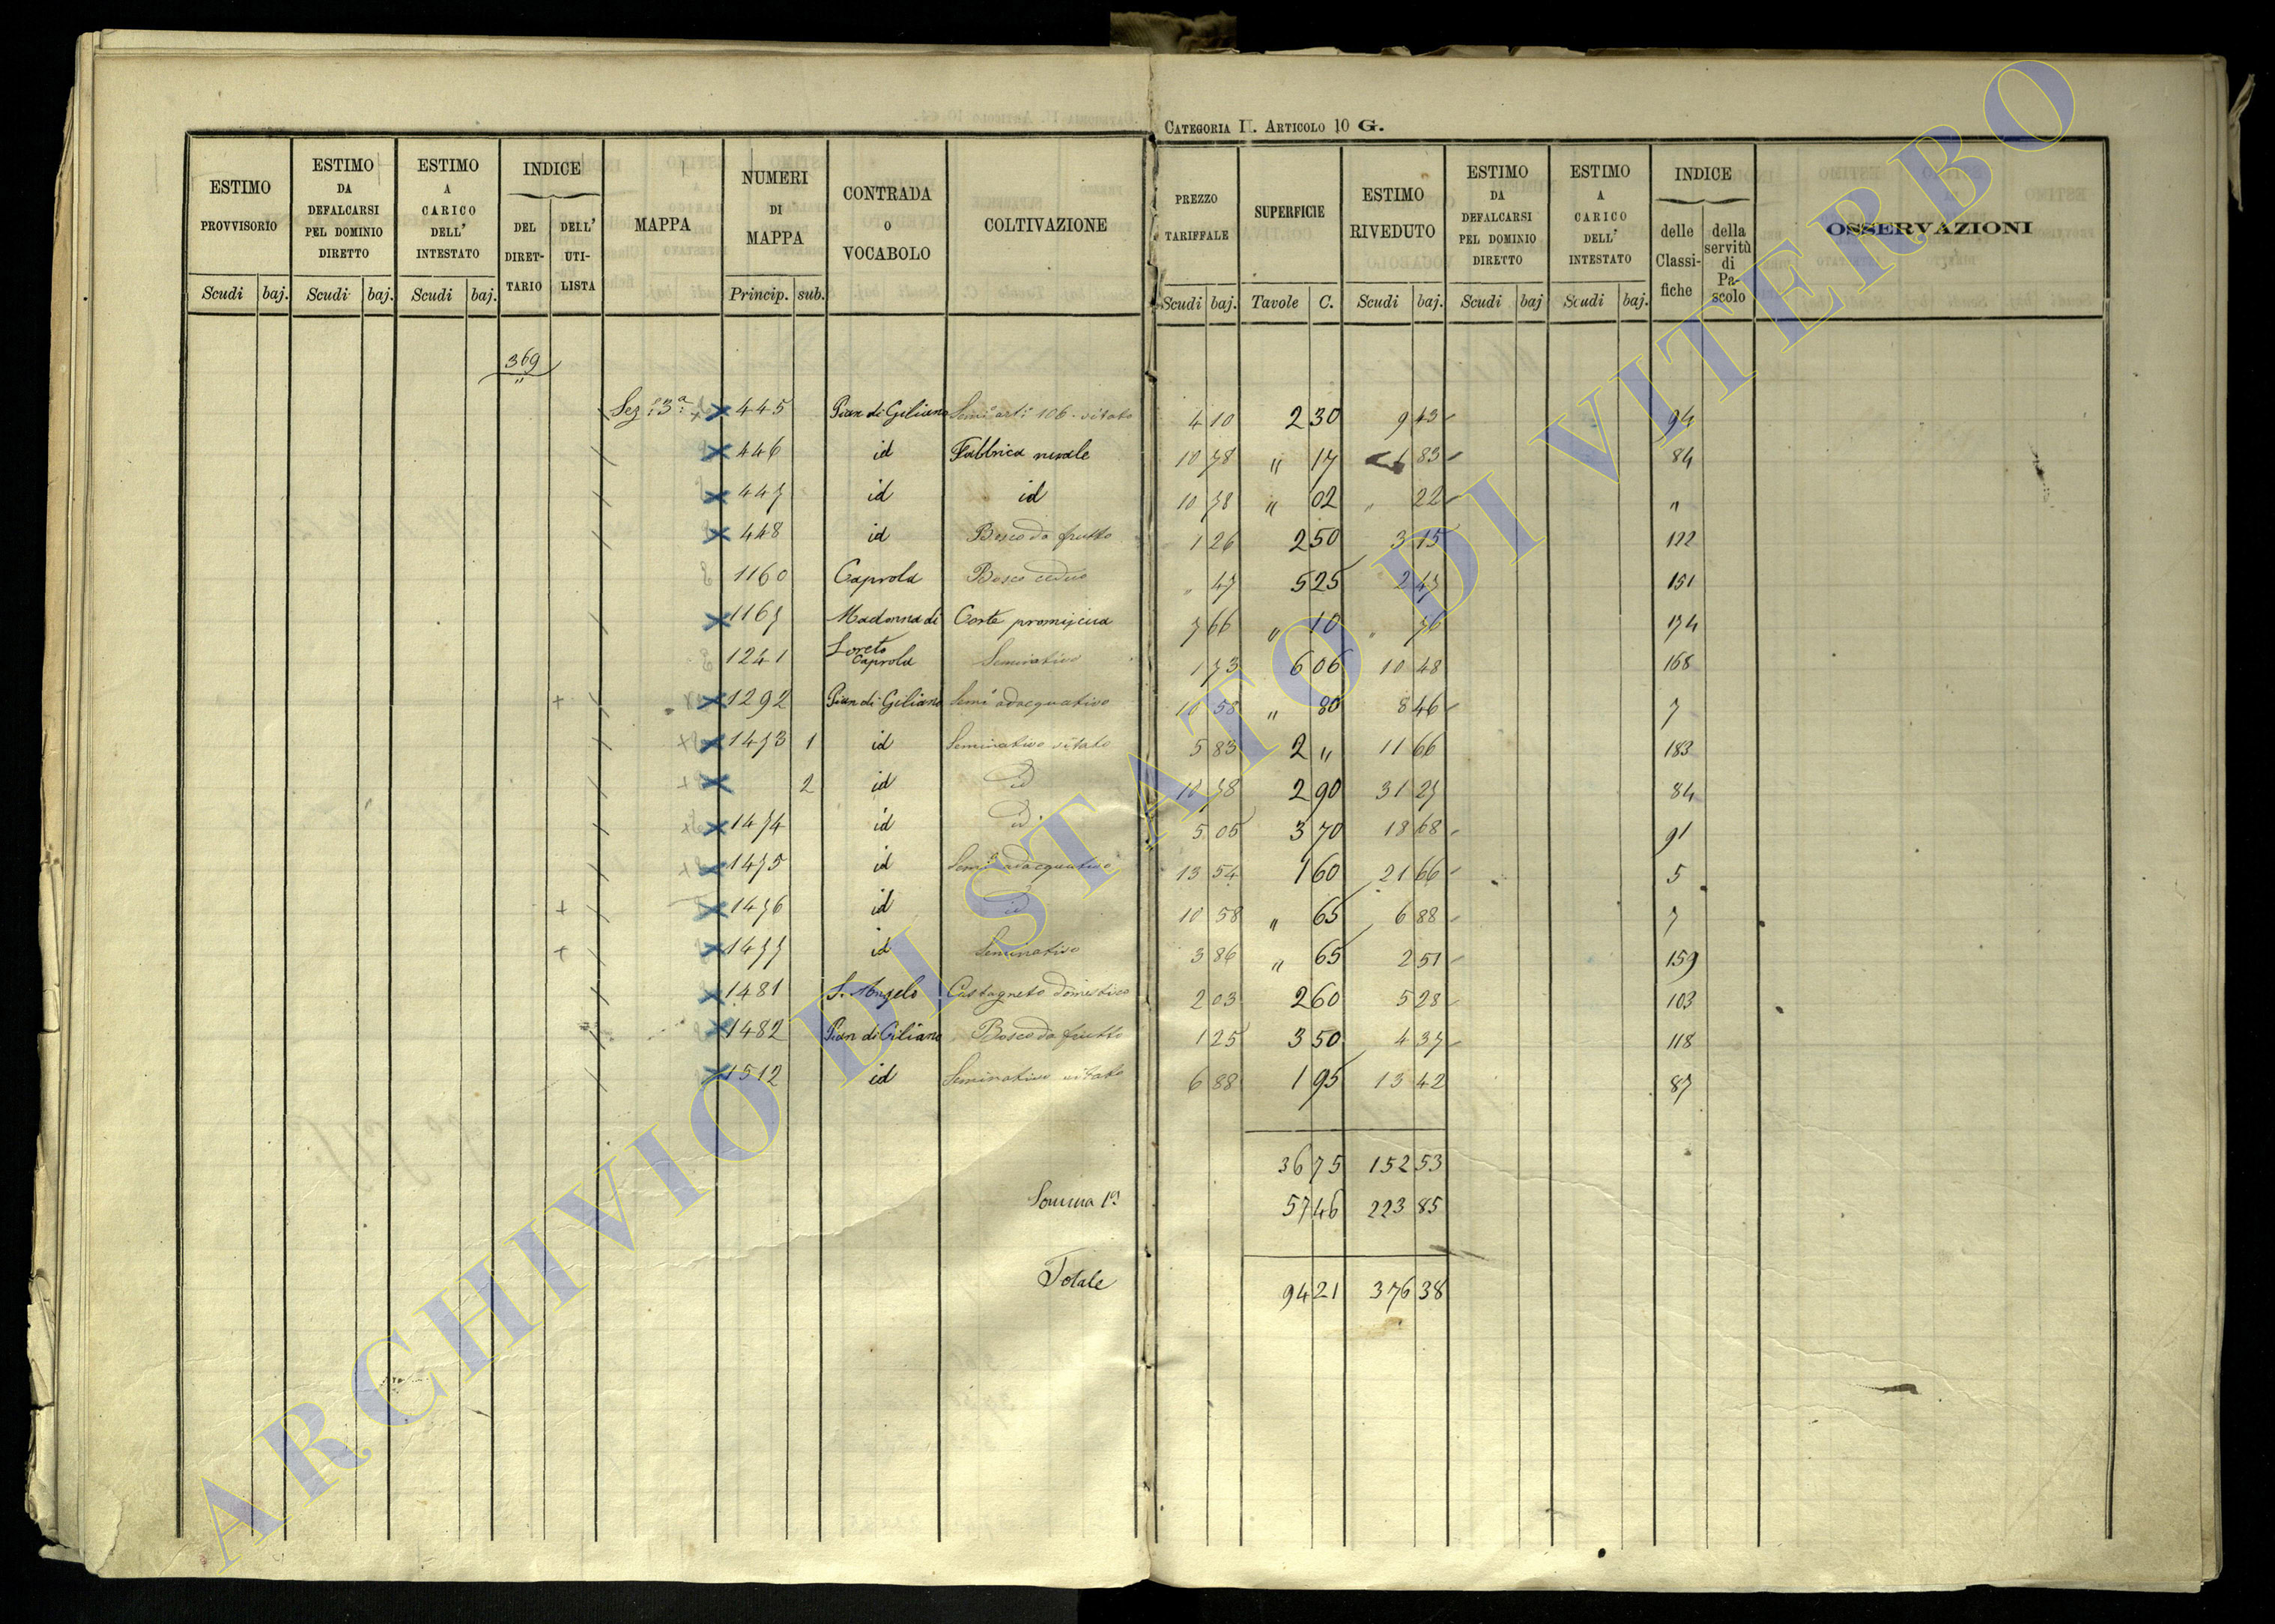 CATEGORIA II. ARTICOLO 10 G.
ESTIMO PROVVISORIO Scudi baj.
ESTIMO DA DEFALCARSI PEL DOMINIO DIRETTO Scudi baj.
ESTIMO A CARICO DELL' INTESTATO Scudi baj.
INDICE DEL DIRET-TARIO DELL' UTI-LISTA
MAPPA
NUMERI DI MAPPA Princip. sub.
CONTRADA O VOCABOLO
COLTIVAZIONE
PREZZO TARIFFALE Scudi baj.
SUPERFICIE Tavole C.
ESTIMO RIVEDUTO Scudi baj.
ESTIMO DA DEFALCARSI PEL DOMINIO DIRETTO Scudi baj
ESTIMO A CARICO DELL' INTESTATO Scudi baj.
INDICE delle Classi-fiche della servitù di Pa-scolo
OSSERVAZIONI
369
"
Sez: 3ª + x 445 Pian di Giliano Semo arto 106. vitato 4 10 2 30 9 43 94
x 446 id Fabbrica rurale 10 78 " 17 1 83 84
x 447 id id 10 78 " 02 " 22 "
x 448 id Bosco da frutto 1 26 2 50 3 15 122
1160 Caprola Bosco ceduo " 47 5 25 2 47 151
x 1167 Madonna di Loreto Corte promiscua 7 66 " 10 " 76 174
1241 Caprola Seminativo 1 73 6 06 10 48 168
+ x 1292 Pian di Giliano Semo adacquativo 10 58 " 80 8 46 7
+ x 1473 1 id Seminativo vitato 5 83 2 " 11 66 183
+ x 2 id id 10 78 2 90 31 27 84
+ x 1474 id id 5 05 3 70 18 68 91
+ x 1475 id Semo adacquativo 13 54 1 60 21 66 5
+ x 1476 id id 10 58 " 65 6 88 7
+ x 1477 id Seminativo 3 86 " 65 2 51 159
x 1481 S. Angelo Castagneto domestico 2 03 2 60 5 28 103
x 1482 Pian di Giliano Bosco da frutto 1 25 3 50 4 37 118
x 1512 id Seminativo vitato 6 88 1 95 13 42 87
36 75 152 53
Somma 1ª 57 46 223 85
Totale 94 21 376 38
ARCHIVIO DI STATO DI VITERBO